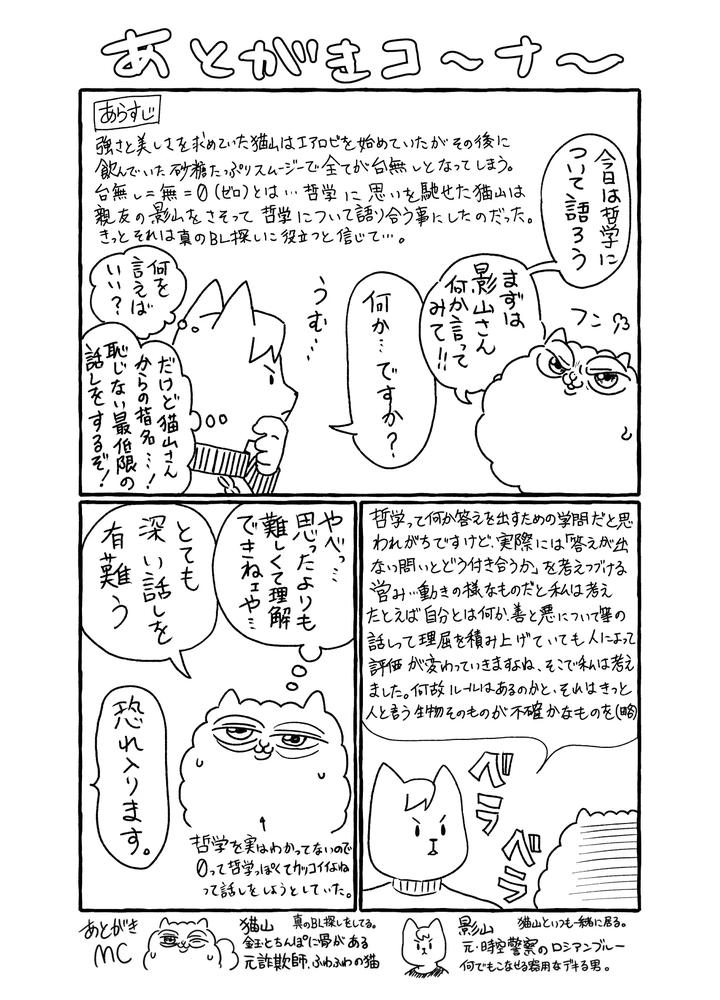 あとがきコ〜ナ〜
あらすじ
強さと美しさを求めていた猫山はエアロビを始めていたがその後に
飲んでいた砂糖たっぷりスムージーで全てが台無しとなってしまう。
台無し=無=0(ゼロ)とは…哲学に思いを馳せた猫山は
親友の影山をさそって哲学について語り合う事にしたのだった。
きっとそれは真のBL探しに役立つと信じて…。
今日は哲学に
ついて語ろう
まずは
影山さん
何か言って
みて!!
フンッ
何か…ですか?
うむ…
何を
言えば
いい?
だけど猫山さん
からの指名…!
恥じない最低限の
話しをするぞ!
哲学って何か答えを出すための学問だと思
われがちですけど、実際には「答えが出
ない問いとどう付き合うか」を考えつづける
営み…動きの様なものだと私は考え
たとえば自分とは何か、善と悪について等の
話しって理屈を積み上げていても人によって
評価が変わっていきますよね、そこで私は考え
ました。何故ルールはあるのかと、それはきっと
人と言う生物そのものが不確かなものを(略)
ベラ
ベラ
やべっ…
思ったよりも
難しくて理解
できねェや…
とても
深い話しを
有難う
恐れ入ります。
↑
哲学を実はわかってないので
0って哲学っぽくてカッコイイよね
って話しをしようとしていた。
あとがき
MC
猫山 真のBL探しをしてる。
金玉とちんぽに骨がある
元詐欺師、ふわふわの猫
影山 猫山といつも一緒に居る。
元・時空警察のロシアンブルー
何でもこなせる器用なデキる男。